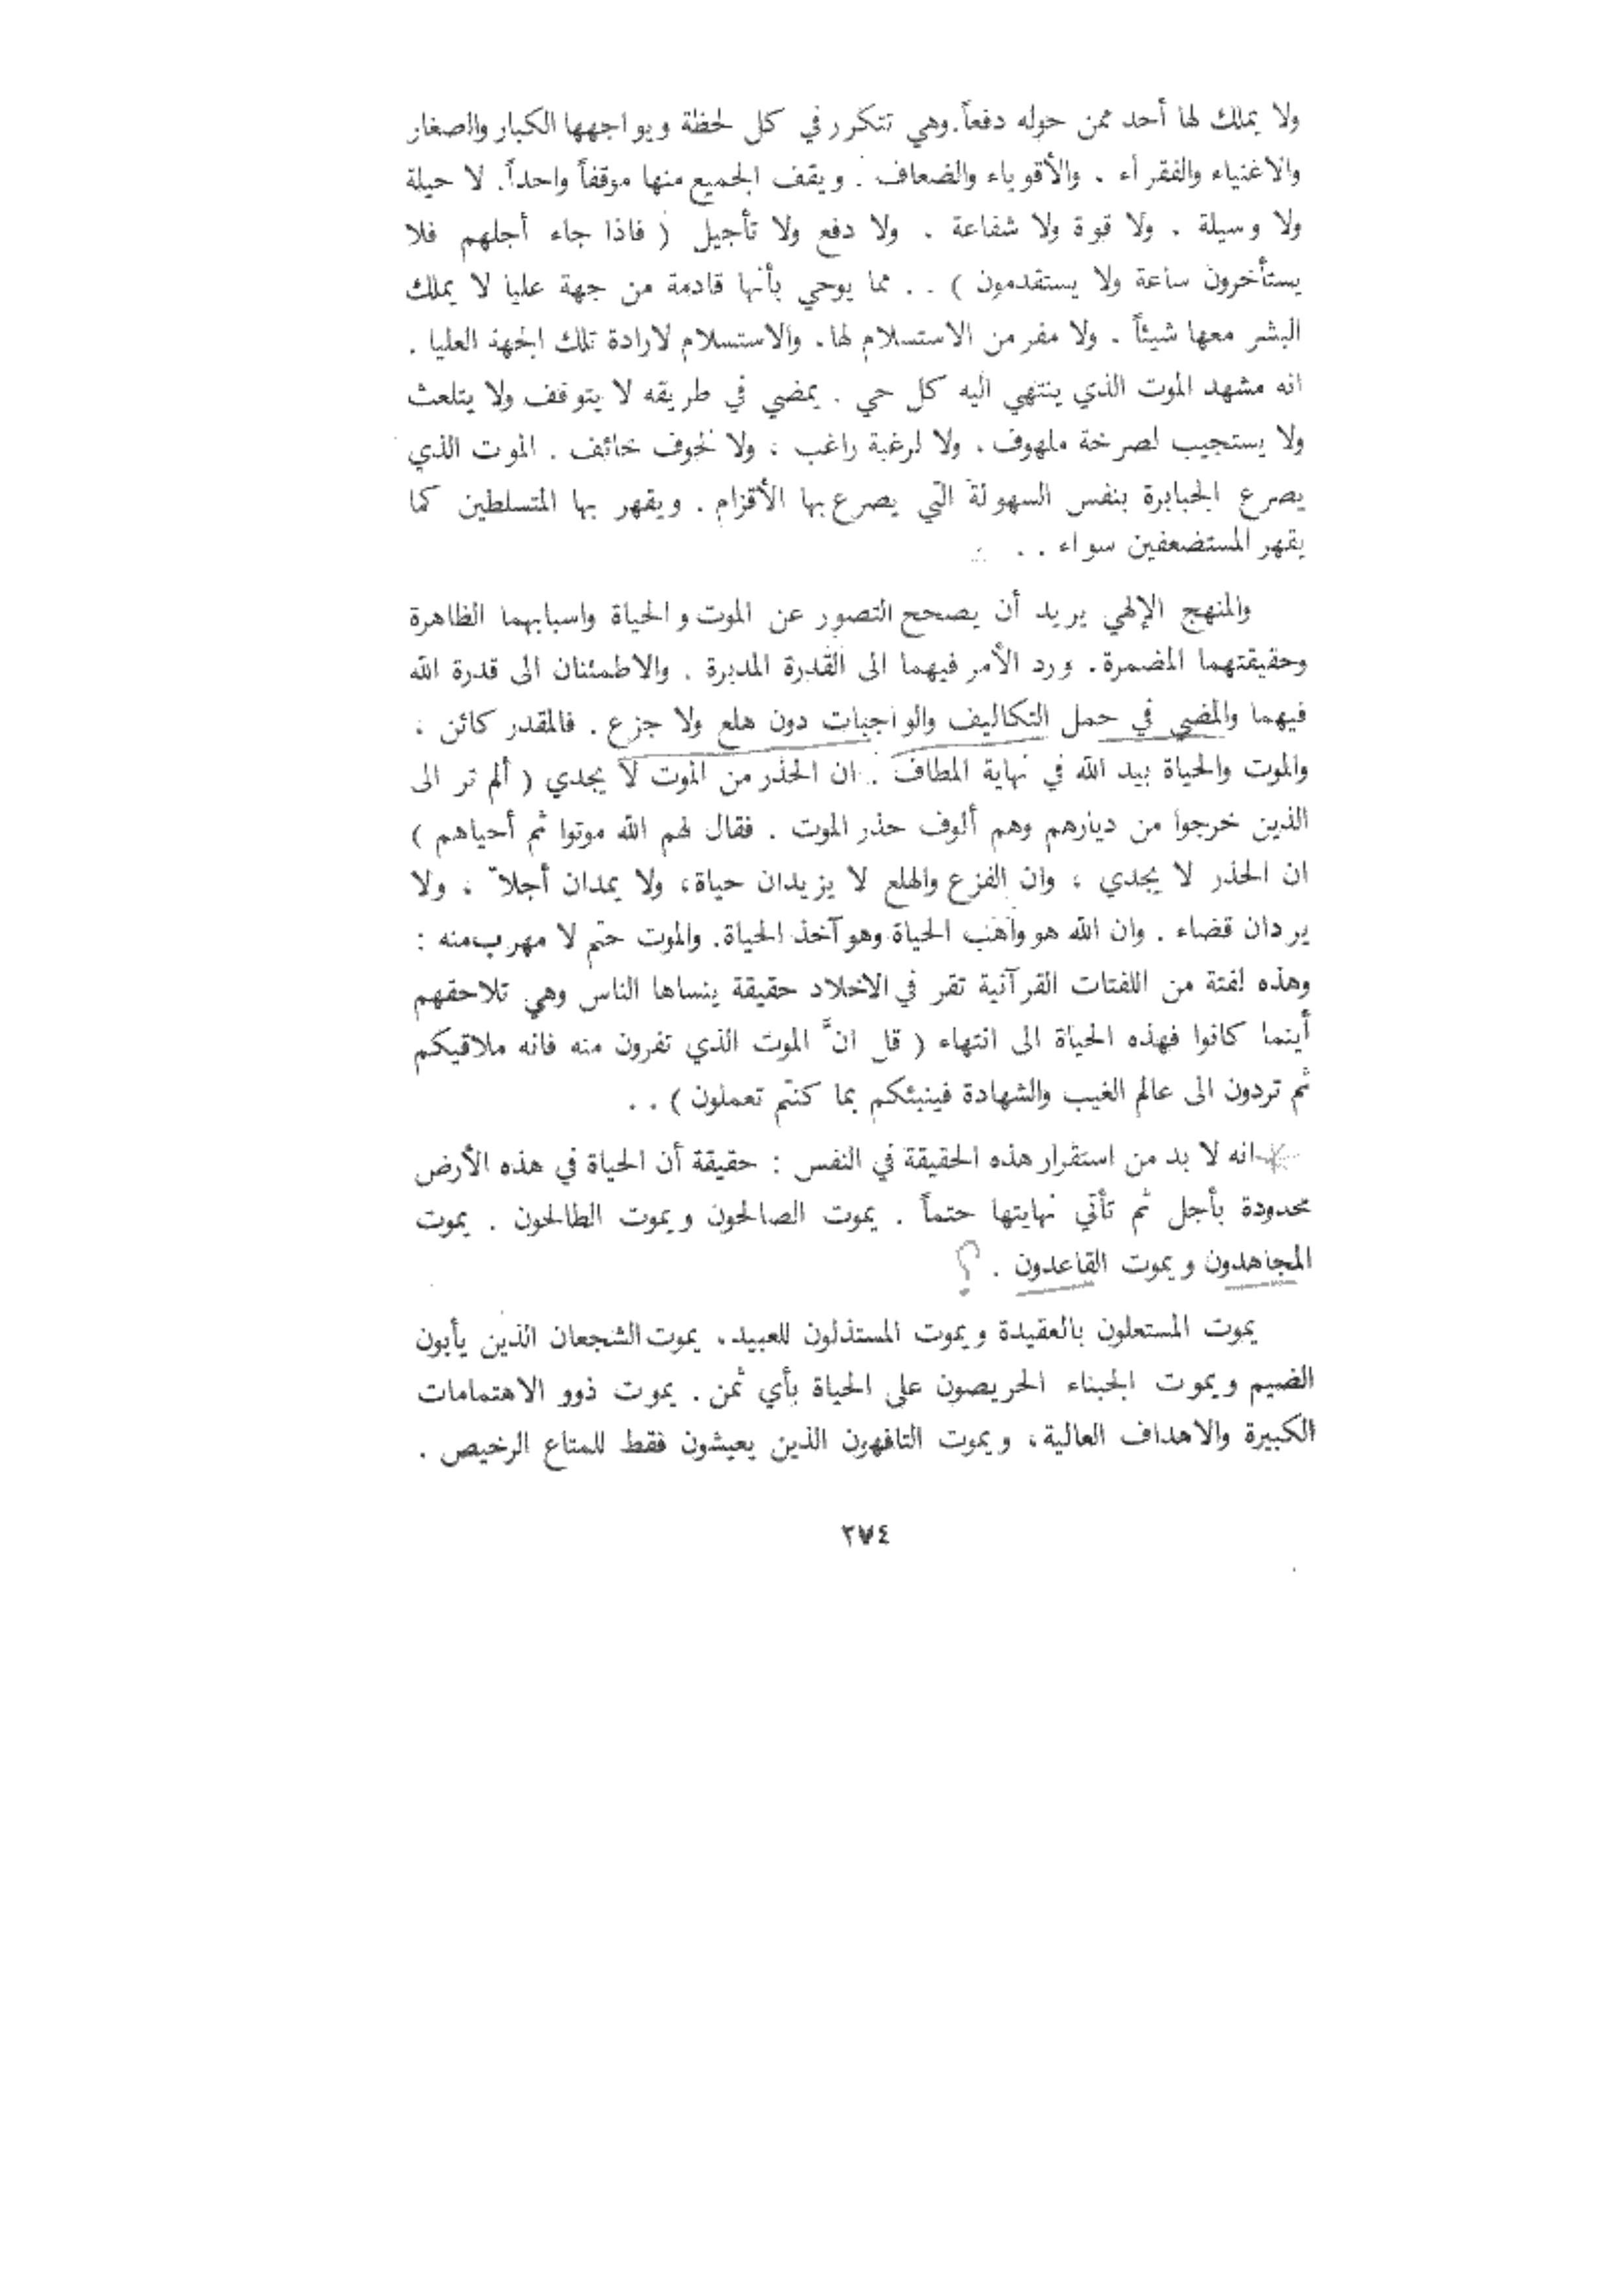 ولا يملك لها أحد ممن حوله دفعاً.وهي تتكرر في كل لحظة ويواجهها الكبار والصغار
والاغنياء والفقراء . والأقوياء والضعاف . ويقف الجميع منها موقفاً واحداً. لا حيلة
ولا وسيلة . ولا قوة ولا شفاعة . ولا دفع ولا تأجيل ( فاذا جاء أجلهم فلا
يستأخرون ساعة ولا يستقدمون ) . . مما يوحي بأنها قادمة من جهة عليا لا يملك
البشر معها شيئاً . ولا مفر من الاستسلام لها. والاستسلام لارادة تلك الجهة العليا .
انه مشهد الموت الذي ينتهي اليه كل حي . يمضي في طريقه لا يتوقف ولا يتلعث
ولا يستجيب لصرخة ملهوف، ولا لرغبة راغب ، ولا لخوف خائف . الموت الذي
يصرع الجبابرة بنفس السهولة التي يصرع بها الأقزام . ويقهر بها المتسلطين كما
يقهر المستضعفين سواء . .
والمنهج الإلهي يريد أن يصحح التصور عن الموت والحياة واسبابهما الظاهرة
وحقيقتهما المضمرة. ورد الأمر فيهما الى القدرة المدبرة . والاطمئنان الى قدرة الله
فيهما والمضي في حمل التكاليف والواجبات دون هلع ولا جزع . فالمقدر كائن ،
والموت والحياة بيد الله في نهاية المطاف . ان الحذر من الموت لا يجدي ( ألم تر الى
الذين خرجوا من ديارهم وهم ألوف حذر الموت . فقال لهم الله موتوا ثم أحياهم )
ان الحذر لا يجدي ، وان الفزع والهلع لا يزيدان حياة، ولا يمدان أجلاً ، ولا
يردان قضاء . وان الله هو واهب الحياة وهو آخذ الحياة. والموت حتم لا مهرب منه :
وهذه لفتة من اللفتات القرآنية تقر في الاخلاد حقيقة ينساها الناس وهي تلاحقهم
أينما كانوا فهذه الحياة الى انتهاء ( قل انَّ الموت الذي تفرون منه فانه ملاقيكم
ثم تردون الى عالم الغيب والشهادة فينبئكم بما كنتم تعملون ) . .
انه لا بد من استقرار هذه الحقيقة في النفس : حقيقة أن الحياة في هذه الأرض
محدودة بأجل ثم تأتي نهايتها حتماً . يموت الصالحون ويموت الطالحون . يموت
المجاهدون ويموت القاعدون . ؟
يموت المستعلون بالعقيدة ويموت المستذلون للعبيد. يموت الشجعان الذين يأبون
الضيم ويموت الجبناء الحريصون على الحياة بأي ثمن . يموت ذوو الاهتمامات
الكبيرة والاهداف العالية، ويموت التافهون الذين يعيشون فقط للمتاع الرخيص .
٢٧٤